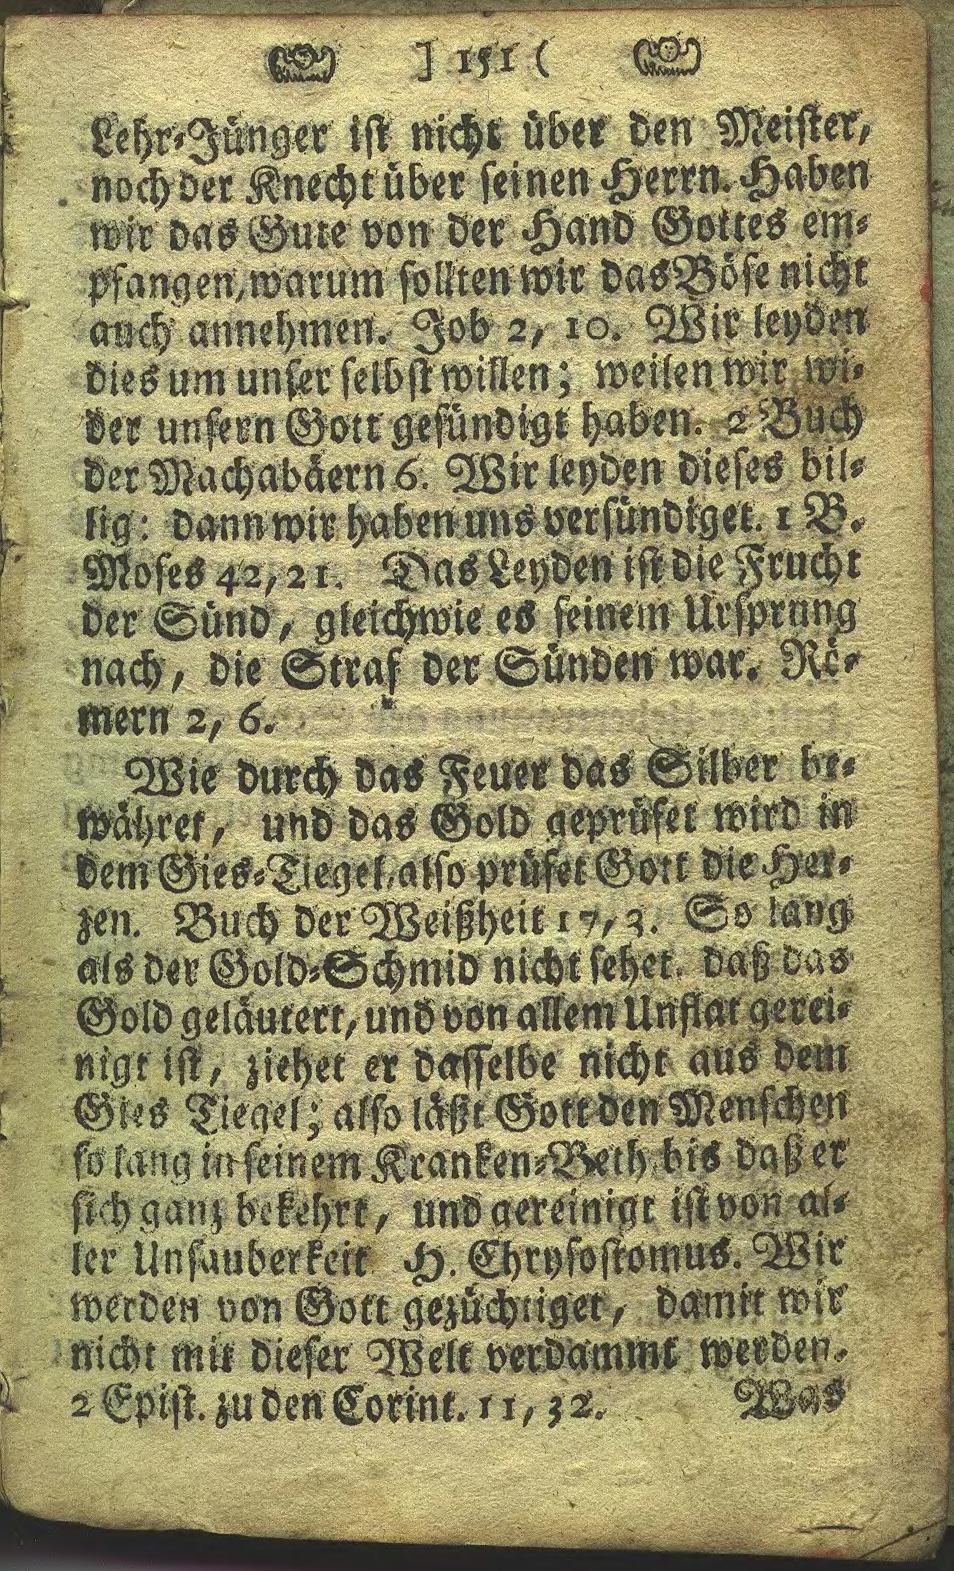 ] 151 (
Lehr-Jünger ist nicht über den Meister,
noch der Knecht über seinen Herrn. Haben
wir das Gute von der Hand Gottes em-
pfangen, warum sollten wir das Böse nicht
auch annehmen. Job 2, 10. Wir leyden
dies um unser selbst willen; weilen wir wi-
der unsern Gott gesündigt haben. 2 Buch
der Machabäern 6. Wir leyden dieses bil-
lig: dann wir haben uns versündiget. 1 B.
Moses 42, 21. Das Leyden ist die Frucht
der Sünd, gleichwie es seinem Ursprung
nach, die Straf der Sünden war. Rö-
mern 2, 6.
Wie durch das Feuer das Silber be-
währet, und das Gold geprüfet wird in
dem Gies-Tiegel, also prüfet Gott die Her-
zen. Buch der Weißheit 17, 3. So lang
als der Gold-Schmid nicht sehet, daß das
Gold geläutert, und von allem Unflat gerei-
nigt ist, ziehet er dasselbe nicht aus dem
Gies Tiegel; also läßt Gott den Menschen
so lang in seinem Kranken-Beth, bis daß er
sich ganz bekehrt, und gereinigt ist von al-
ler Unsauberkeit. H. Chrysostomus. Wir
werden von Gott gezüchtiget, damit wir
nicht mit dieser Welt verdammt werden.
2 Epist. zu den Corint. 11, 32. Was